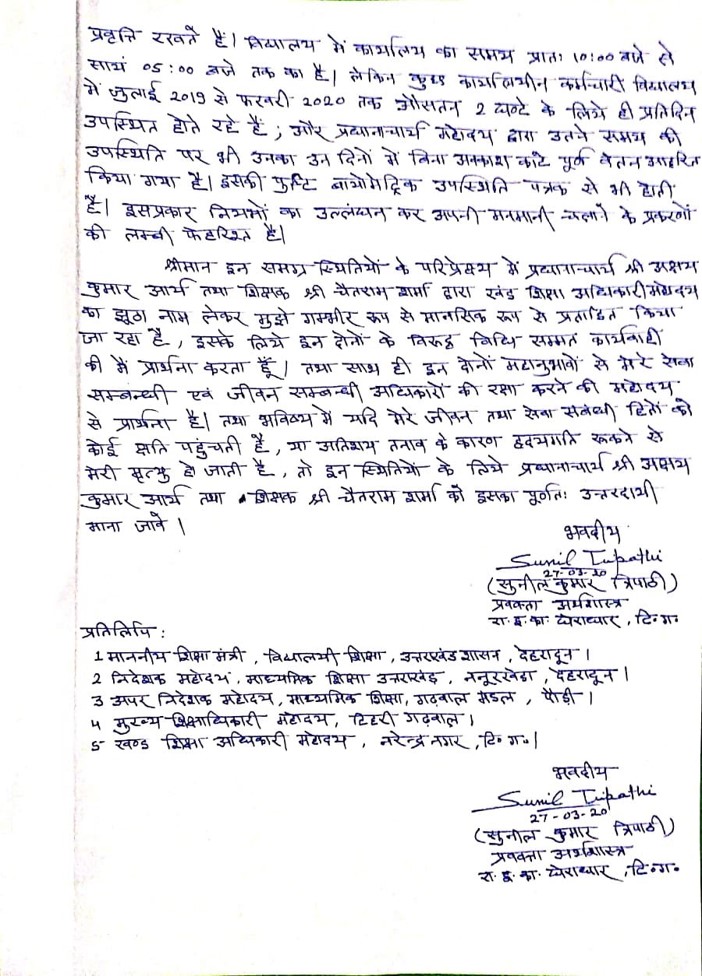 प्रवृत्ति रखते हैं। विद्यालय में कार्यालय का समय प्रातः 10:00 बजे से
सायं 05:00 बजे तक का है। लेकिन कुछ कार्यालयीन कर्मचारी विद्यालय
में जुलाई 2019 से फरवरी 2020 तक औसतन 2 घण्टे के लिये ही प्रतिदिन
उपस्थित होते रहे हैं; और प्रधानाचार्य महोदय द्वारा उतने समय की
उपस्थिति पर भी उनका उन दिनों में बिना अवकाश काटे पूर्ण वेतन आहरित
किया गया है। इसकी पुष्टि बायोमेट्रिक उपस्थिति पत्रक से भी होती
है। इसप्रकार नियमों का उल्लंघन कर अपनी मनमानी चलाने के प्रकरणों
की लम्बी फेहरिश्त है।
श्रीमान इन समग्र स्थितियों के परिप्रेक्ष्य में प्रधानाचार्य श्री अक्षय
कुमार आर्य तथा शिक्षक श्री चैतराम शर्मा द्वारा खंड शिक्षा अधिकारी महोदय
का झूठा नाम लेकर मुझे गम्भीर रूप से मानसिक रूप से प्रताड़ित किया
जा रहा है, इसके लिये इन दोनों के विरुद्ध विधि सम्मत कार्यवाही
की मैं प्रार्थना करता हूँ। तथा साथ ही इन दोनों महानुभावों से मेरे सेवा
सम्बन्धी एवं जीवन सम्बन्धी अधिकारों की रक्षा करने की महोदय
से प्रार्थना है। तथा भविष्य में यदि मेरे जीवन तथा सेवा संबंधी हितों को
कोई क्षति पहुंचती है, या अतिशय तनाव के कारण हृदयगति रूकने से
मेरी मृत्यु हो जाती है, तो इन स्थितियों के लिये प्रधानाचार्य श्री अक्षय
कुमार आर्य तथा शिक्षक श्री चैतराम शर्मा को इसका पूर्णतः उत्तरदायी
माना जावे।
भवदीय
Sunil Tripathi
27-03-20
(सुनील कुमार त्रिपाठी)
प्रवक्ता अर्थशास्त्र
रा. इ. का. घेराधार, टि॰ग॰
प्रतिलिपि:
1 माननीय शिक्षा मंत्री, विद्यालयी शिक्षा, उत्तराखंड शासन, देहरादून।
2 निदेशक महोदय, माध्यमिक शिक्षा उत्तराखंड, ननूरखेडा, देहरादून।
3 अपर निदेशक महोदय, माध्यमिक शिक्षा, गढ़वाल मंडल, पौड़ी।
4 मुख्य शिक्षाधिकारी महोदय, टिहरी गढ़वाल।
5- खण्ड शिक्षा अधिकारी महोदय, नरेन्द्र नगर, टि॰ ग॰।
भवदीय
Sunil Tripathi
27-03-20
(सुनील कुमार त्रिपाठी)
प्रवक्ता अर्थशास्त्र
रा. इ. का. घेराधार, टि॰ग॰